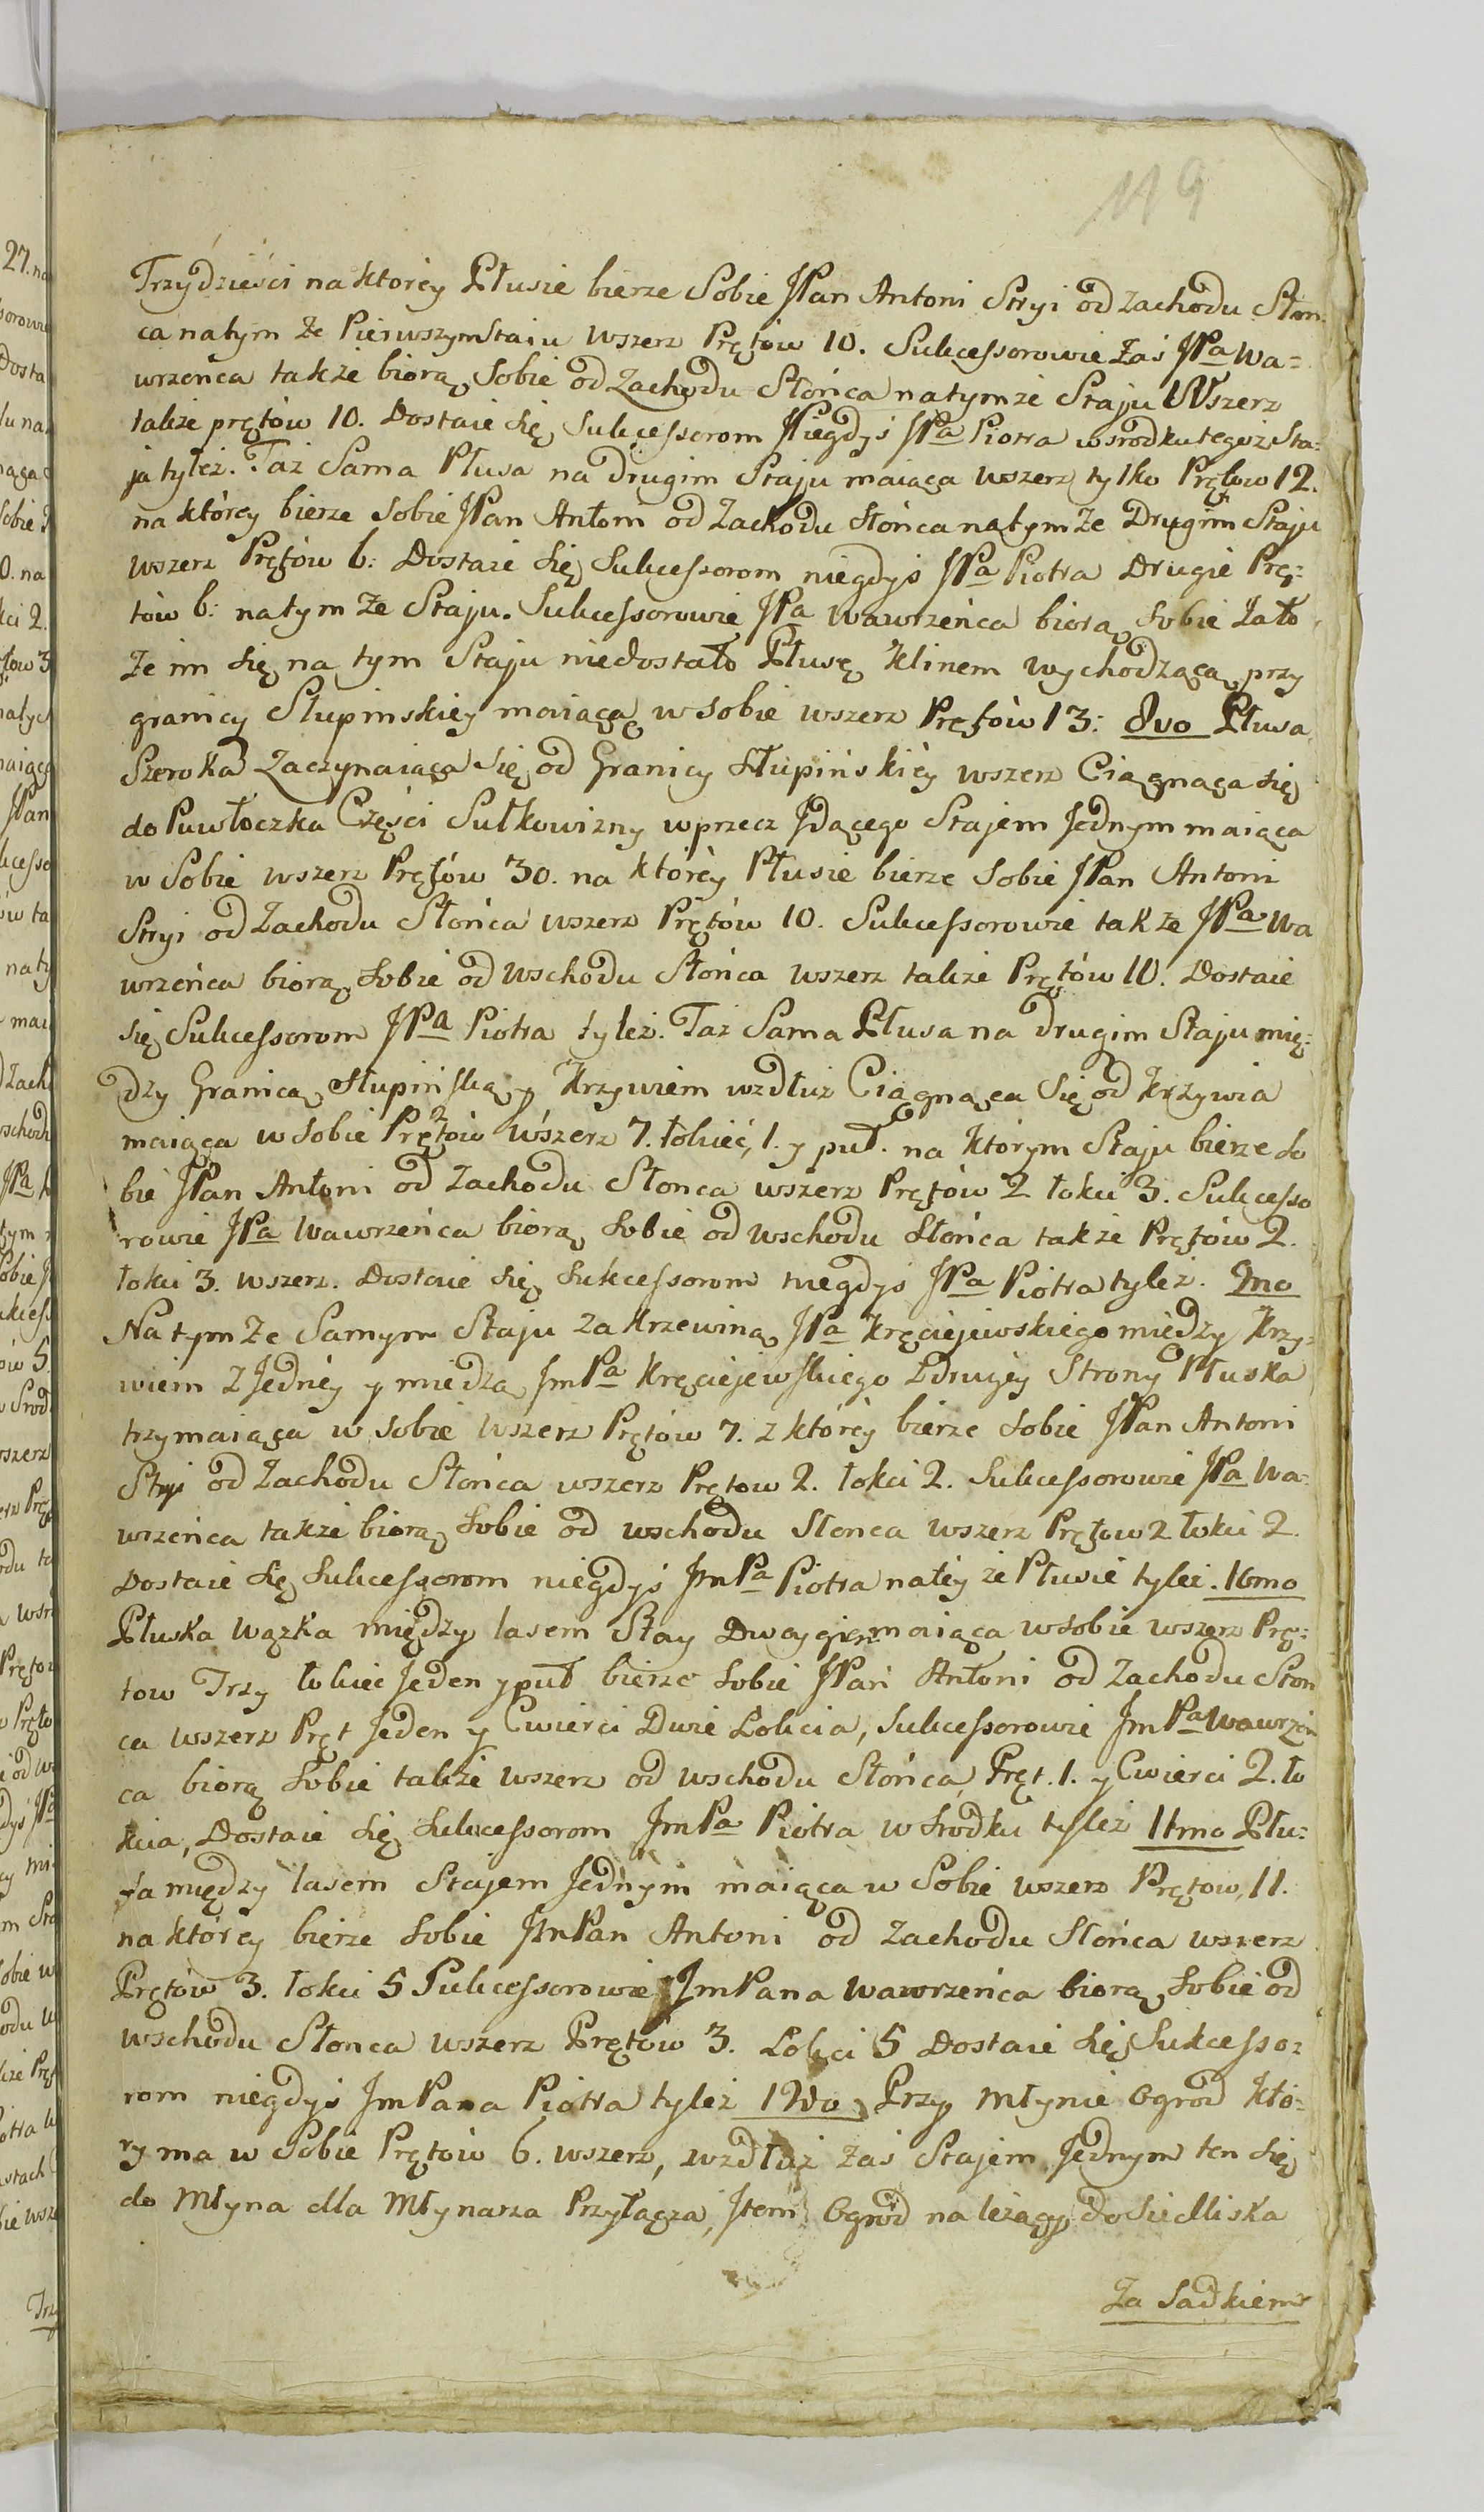 119
Trzydzieści na ktorey Płusie bierze Sobie JPan Antoni Stryi od zachodu Słon
ca natym że Pierwszym Staiu wszerz Prętów 10. Sukcessorowie zaś JPa Wa=
wrzeńca także biorą Sobie od Zachodu Słońca natymże Staju Wszerz
także prętów 10. Dostaie się Sukcessorom Niegdyś JPa Piotra wsrodku tegoż Sta=
ja tyleż. Taż Sama Płusa na drugim Staju maiąca wszerz tylko Prętow 12.
na którey bierze Sobie JPan Antoni od Zachodu Słońca natym że Drugim Staju
wszerz Prętów 6: Dostaie się Sukcessorom niegdyś JPa Piotra Drugie Prę=
tów 6: natym że Staju. Sukcessorowie JPa Wawrzeńca biorą Sobie Zato
że im się na tym Staju niedostało Płusę klinem wychodzącą przy
granicy Słupinskiey maiącą w sobie wszerz Prętów 13: 8vo Płusa
Szeroka Zaczynaiąca Się od Granicy Słupińskiey wszerz Ciągnąca się
do Pawłoczka Części Sułkowizny wprzecz Jdącego Stajem Jednym maiąca
w Sobie wszerz Prętów 30. na którey Płusie bierze Sobie JPan Antoni
Stryi od Zachodu Słońca wszerz Prętów 10. Sukcessorowie także JPa Wa
wrzeńca biorą Sobie od Wschodu Słońca wszerz także Prętów 10. Dostaie
się Sukcessorom JPa Piotra tyleż. Taż Sama Płusa na drugim Staju mię=
dzy Granicą Słupińską y Krzywiem wzdłuż Ciągnąca Się od Krzywia
maiąca w Sobie Prętów wszerz 7. łokieć, 1. y puł. na którym Staju bierze So
bie JPan Antoni od Zachodu Słonca wszerz Prętów 2 łokci 3. Sukcesso
rowie JPa Wawrzeńca biorą Sobie od wschodu Słońca także Prętów 2.
łokci 3. wszerz. Dostaie się Sukcessorom niegdyś JPa Piotra tyleż. 9mo
Natym że Samym Staju za Krzewiną JPa Kręciejewskiego między Krzy=
wiem z Jedney y miedzą JmPa Kręciejewskiego z drugiey Strony Płuska
trzymaiąca w sobie wszerz Prętów 7. z którey bierze Sobie JPan Antoni
Stryi od Zachodu Słońca wszerz Prętow 2. łokci 2. Sukcessorowie JPa Wa=
wrzeńca także biorą Sobie od wschodu Słonca wszerz Prętow 2 łokci 2.
Dostaie się Sukcessorom niegdyś JmPa Piotra natey że Płusie tyleż. 10mo
Płuska Wązka między lasem Stay Dwoygiem maiąca w sobie wszerz Prę=
tow Trzy łokieć Jeden y puł bierze Sobie JPan Antoni od Zachodu Słon
ca wszerz Pręt Jeden y Cwierci Dwie Łokcia, Sukcessorowie JmPa Wawrzeń
ca biorą Sobie także wszerz od wschodu Słońca Pręt. 1. y Cwierci 2. ło
kcia, Dostaie się Sukcessorom JmPa Piotra w środku tyleż 11mo Płu=
sa między lasem Stajem Jednym maiąca w Sobie wszerz Prętow, 11.
na którey bierze Sobie JmPan Antoni od Zachodu Słońca wszerz
Prętów 3. łokci 5 Sukcessorowie JmPana Wawrzeńca biorą Sobie od
wschodu Słonca wszerz Prętów 3. Łokci 5 Dostaie się Sukcesso=
rom niegdyś JmPana Piotra tyleż 12do Przy Młynie Ogrod któ=
ry ma w Sobie Prętów 6. wszerz, wzdłuż zaś Stajem Jednym ten się
do Młyna dla Młynarza Przyłącza, Jtem Ogród należący do Siedliska
Za Sadkiem